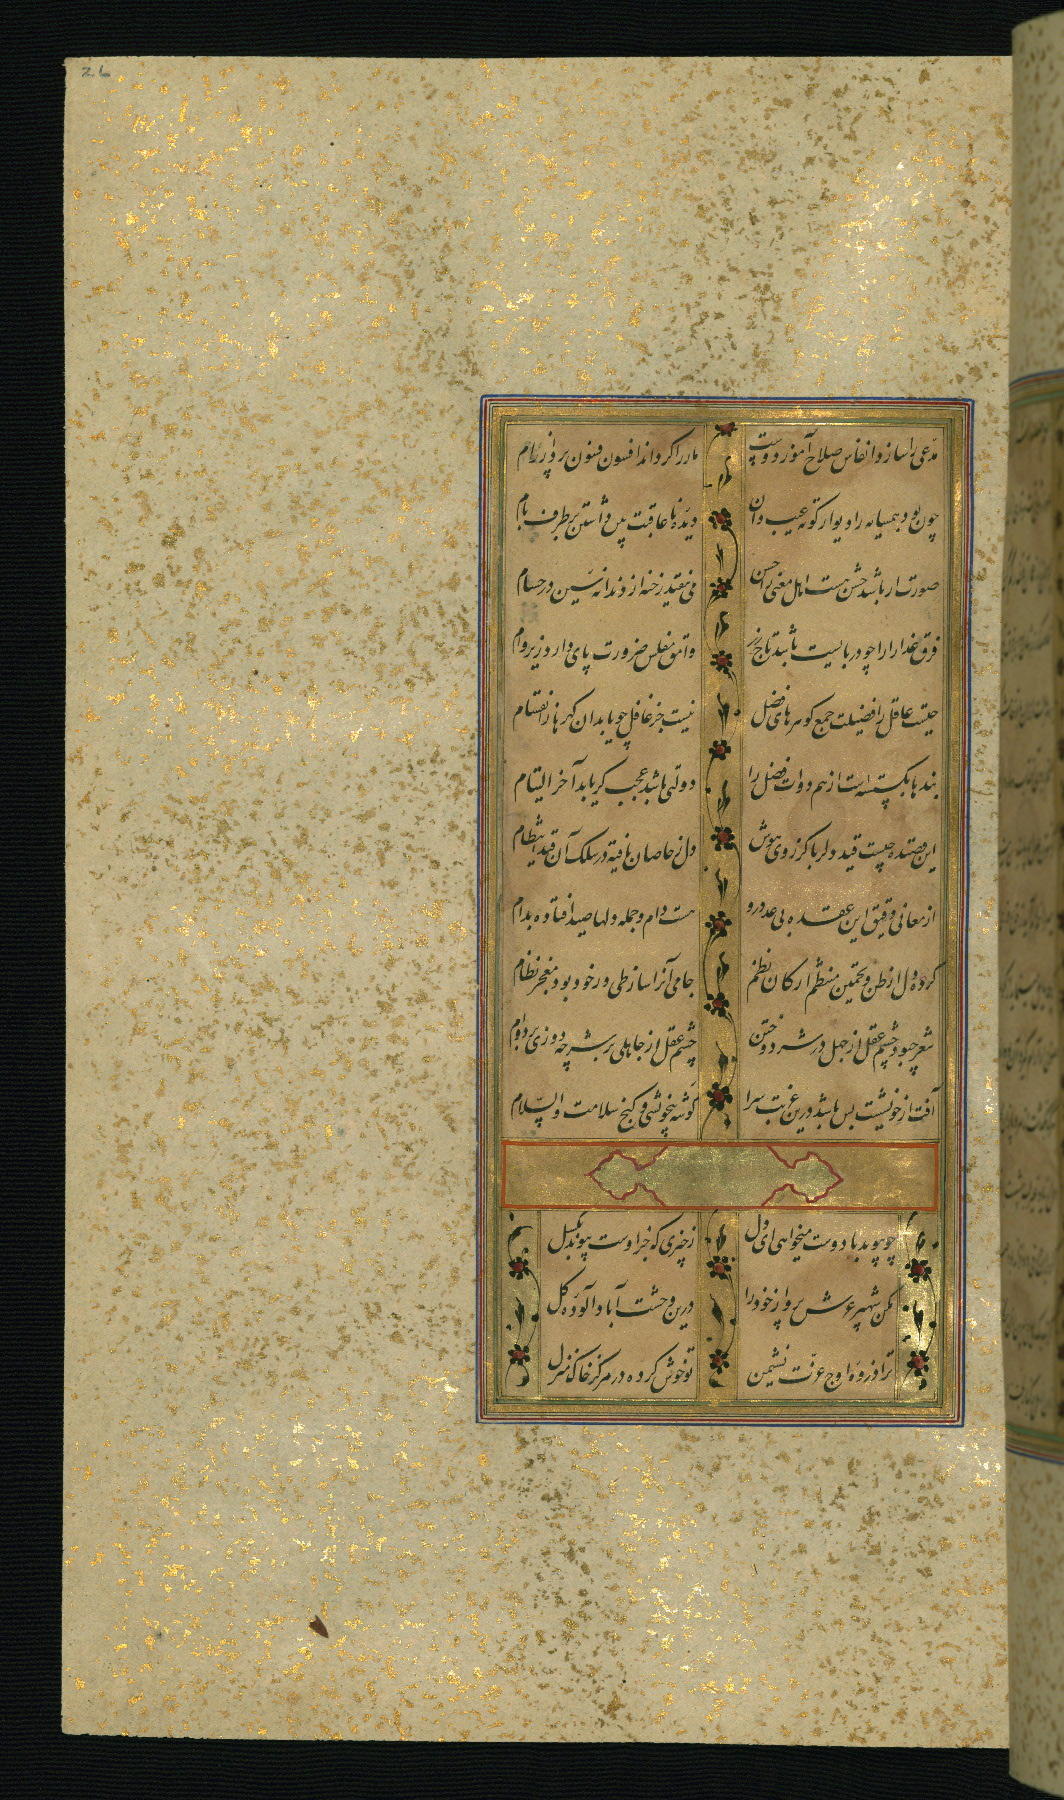 26
مدعی را سازد انفاس صلاح آموز دوست مار را گرداند افسون فسون پرداز رام
چون بود همسایه را دیوار کوته عیب دان دیده ها عاقبت پس داشتن بر طرف بام
صورت ار باشد خشن هست اهل معنی را حسن می نیفتد رخنه از دندانه سین در حسام
فرق بخدار را چو دربایست باشد تاج زر وامق مفلس ضرورت پای دارد زیر وام
چیست عاقل را فضیلت جمع گوهرهای فضل نیست جز غافل چو یابد آن گهرها زانقسام
بندها بگسسته است از هم دوات فضل را دولتی باشد عجب گر یابد آخر التیام
این قصیده چیست قید دلربا کز روی هوش دل ز خاصان یافته در سلک آن قید انتظام
از معانی دقیق این عقده بی عد درو هست دام و جمله دلها صید افتاده بدام
کرده دل از ظن و تخمین منتظم ارکان نظم جامی آنرا ساز طی ور خود بود معجز نظام
شعر چبود چشم عقل از جهل در شر دوختن چشم عقل از جاهلی بر شر چه دوزی بر دوام
آفت از خویشت بس باشد درین غربت سرا گوشه بیخویشی و کنج سلامت والسلام
چو پیوند با دوست میخواهی ای دل ز چیزی که جز اوست پیوند بگسل
مکن شهپر عرش پرواز خود را درین وحشت آباد آلوده گل
ترا ذروه اوج عزت نشیمن تو خوش کرده در مرکز خاک منزل